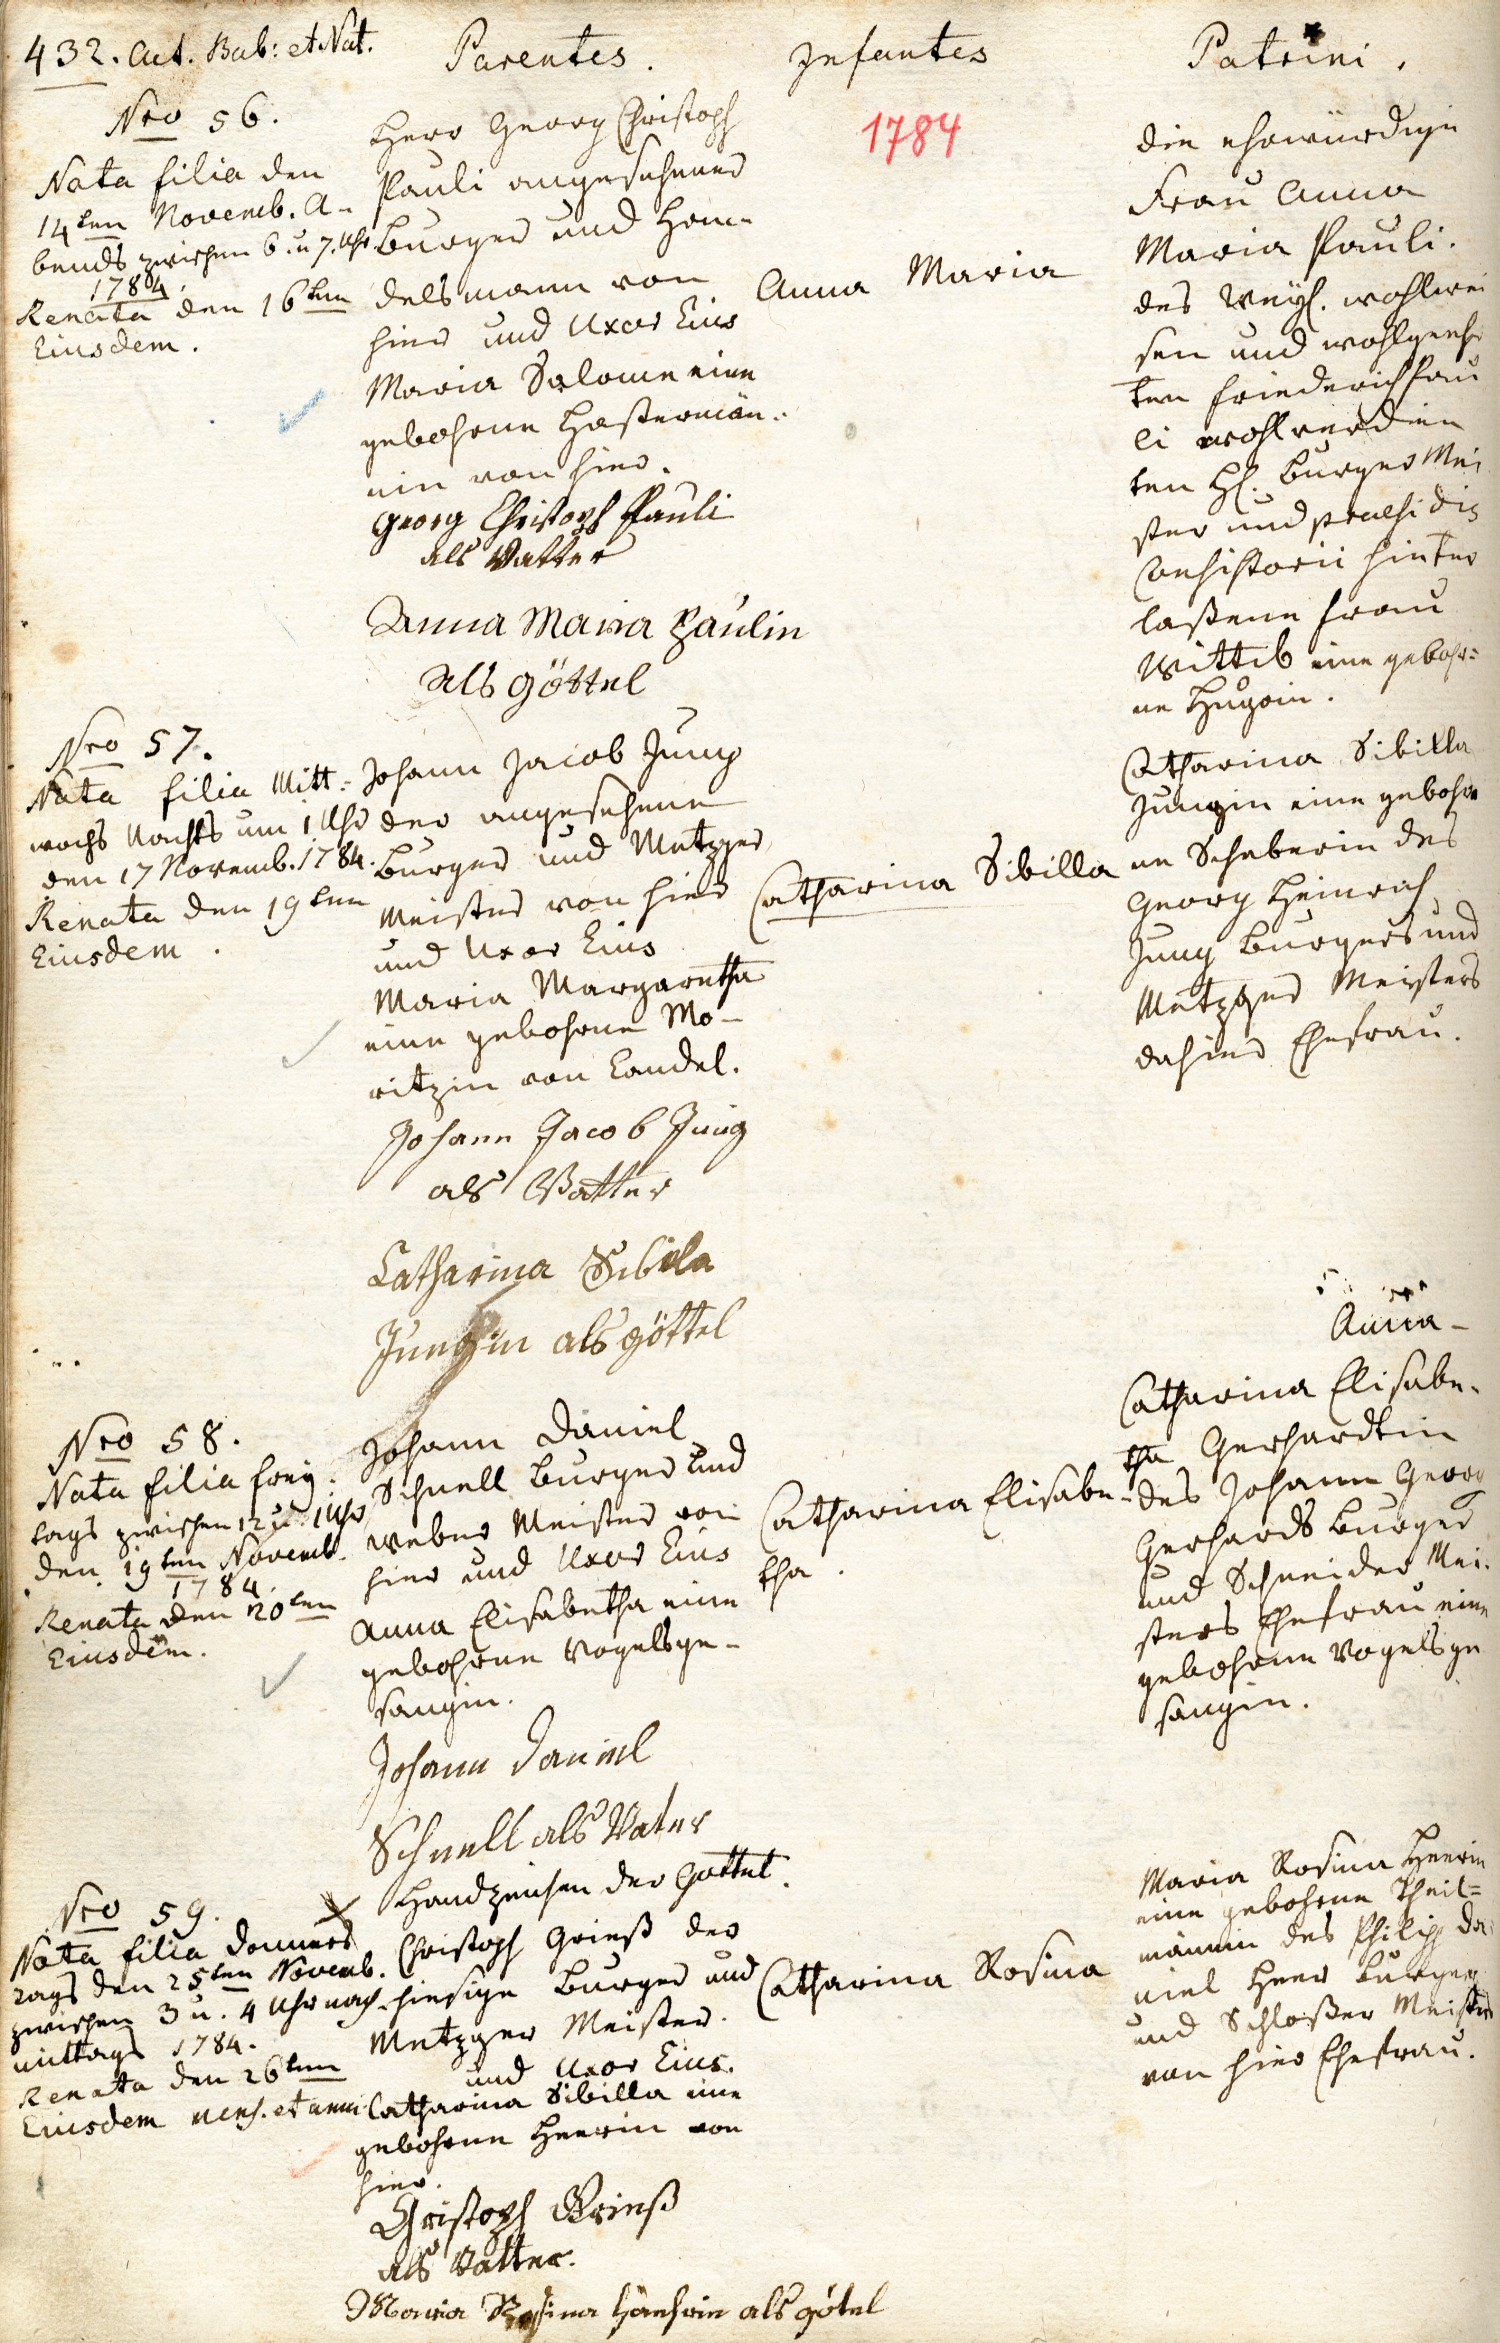 432. Act. Bab: et Nat.
Parentes.
Infantes
Patrini.
1784
Nro 56.
Nata filia den
14ten Novemb. A-
bends zwischen 6. u 7. Uhr
1784
Renata den 16ten
Eiusdem.
Herr Georg Christoph
Pauli angesehener
Burger und Han-
delsmann von
hier und Uxor Eius
Maria Salome eine
gebohrne Hastermän-
nin von hier.
Georg Christoph Pauli
als Vatter
Anna Maria Paulin
als göttel
Anna Maria
die ehrwürdige
Frau Anna
Maria Pauli.
des weyl. wohlwei
sen und wohlgeehr
ten Friederich Pau
li wohlverdien
ten H. Burger Mei
ster und praesidis
Consistorii hinter
laßene Frau
Wittib eine gebohr=
ne Hugoin.
Nro 57.
Nata filia Mitt=
wochs Nachts um 1 Uhr
den 17 Novemb. 1784.
Renata den 19ten
Eiusdem.
Johann Jacob Jung
der angesehene
Burger und Metzger
Meister von hier
und Uxor Eius
Maria Margaretha
eine gebohrne Mo-
ritzin von Candel.
Johann Jacob Jung
als Vatter
Catharina Sibila
Jungin als göttel
Catharina Sibilla
Catharina Sibilla
Jungin eine gebohr
ne Schaberin des
Georg Heinrich
Jung Burgers und
Metzger Meisters
dahier Ehefrau.
Nro 58.
Nata filia frey-
tags zwischen 12 u. 1 Uhr
den 19ten Novemb.
1784.
Renata den 20ten
Eiusdem.
Johann Daniel
Schnell Burger und
weber Meister von
hier und Uxor Eius
Anna Elisabetha eine
gebohrne Vogelsge-
sangin.
Johann Daniel
Schnell als Vater
Handzeichen der Gottel.
Catharina Elisabe-
tha.
Anna-
Catharina Elisabe-
tha Gerhardtin
des Johann Georg
Gerhards Burger
und Schneider Mei-
sters Ehefrau eine
gebohrne Vogelsge
sangin.
Nro 59.
Nata filia Donners
tags den 25ten Novemb.
zwischen 3 u. 4 Uhr nach-
mittags 1784.
Renata den 26ten
Eiusdem mens. et anni
Christoph Grieß der
hiesige Burger und
Metzger Meister.
und Uxor Eius.
Catharina Sibilla eine
gebohrne Heerin von
hier.
Christoph Grieß
als Vatter.
Maria Rosina Häherin als götel
Catharina Rosina
Maria Rosina Heerin
eine gebohrne Theil=
männin des Philipp Da
niel Heer Burger
und Schloßer Meister
von hier Ehefrau.